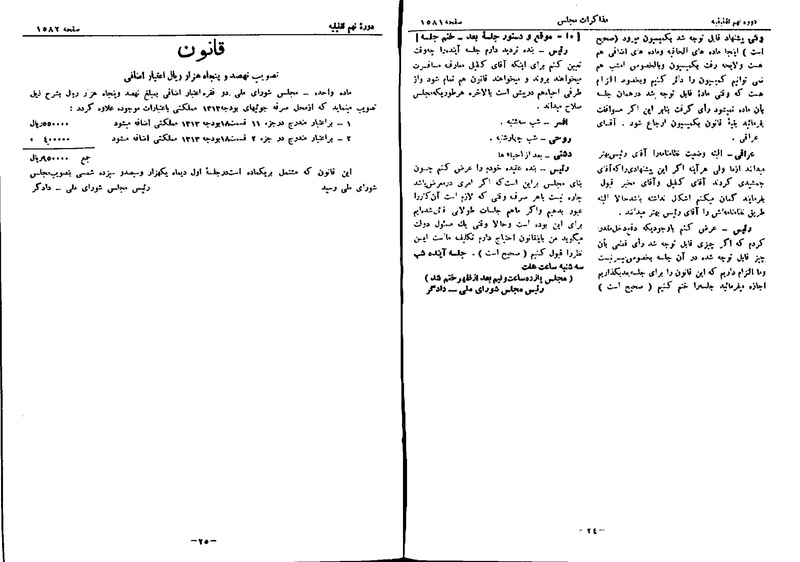 دوره نهم تقنینیه
مذاکرات مجلس
صفحه ۱۵۸۱
وقتی پیشنهاد قابل توجه شد بکمیسیون میرود (صحیح
است) اینجا ماده های الحاقیه وماده های اضافی هم
هست ولایحه رفت بکمیسیون وبالخصوص امشب هم
نمی توانیم کمیسیون را ذکر کنیم وبخصوص الزام
هست که وقتی مادهٔ قابل توجه شد درهمان جلسه
بآن ماده نمیشود رأی گرفت بنابر این اگر موافقت
بفرمائید بقیهٔ قانون بکمیسیون ارجاع شود . آقای
عراقی .
عراقی – البته وضعیت نظامنامه‌را آقای رئیس‌بهتر
میداند ازما ولی هرآینه اگر این پیشنهادی‌را که‌آقای
جمشیدی کردند آقای کفیل وآقای مخبر قبول
بفرمایند گمان میکنم اشکال نداشته باشدحالا البته
طریق نظامنامه‌اش را آقای رئیس بهتر میدانند .
رئیس – عرض کنم باوجودیکه دقیق
کردم که اگر چیزی قابل توجه شد رأی قطعی بآن
چیز قابل توجه شده در آن جلسه بخصوص‌میسرنیست
وما الزام داریم که این قانون را برای جلسه‌بعدبگذاریم
اجازه میفرمائید جلسه‌را ختم کنیم ( صحیح است )
[ ۱۰ – موقع و دستور جلسهٔ بعد – ختم جلسه ]
رئیس – بنده تردید دارم جلسه آینده‌را چه‌وقت
تعیین کنم برای اینکه آقای کفیل معارف مسافرت
میخواهند بروند و میخواهند قانون هم تمام شود واز
طرفی احیاهم درپیش است بالاخره هرطوریکه‌مجلس
صلاح میداند .
افسر – شب سه‌شنبه .
روحی – شب چهارشنبه .
دشتی – بعد از احیاء ها
رئیس – بنده عقیده خودم را عرض کنم چون
بنای مجلس براین است‌که اگر امری درمعرض‌باشد
چاره نیست باهر صرف وقتی که لازم است آن‌کاررا
عبور بدهیم واگر ماهم جلسات طولانی قائل‌شده‌ایم
برای این بوده است وحالا وقتی یك مسئول دولت
میگوید من باینقانون احتیاج دارم تکلیف ماست این
نظررا قبول کنیم ( صحیح است ) . جلسه آینده شب
سه شنبه ساعت هفت
( مجلس یازده‌ساعت‌ونیم بعد از ظهر ختم شد )
رئیس مجلس شورای ملی – دادگر
– ۲٤ –
دوره نهم تقنینیه
صفحه ۱۵۸۲
قانون
تصویب نهصد و پنجاه هزار ریال اعتبار اضافی
ماده واحده – مجلس شورای ملی دو فقره اعتبار اضافی بمبلغ نهصد وپنجاه هزار ریال بشرح ذیل
تصویب مینماید که ازمحل صرفه جوئیهای بودجه ۱۳۱۳ مملکتی باعتبارات موجوده علاوه گردد :
۱ – براعتبار مندرج درجزء ۱۱ قسمت۱۸بودجه ۱۳۱۳ مملکتی اضافه میشود ۵۵۰۰۰۰ریال
۲ – براعتبار مندرج در جزء ۲ قسمت۱۸بودجه ۱۳۱۳ مملکتی اضافه میشود ٤۰۰۰۰۰ »
جمع ۹۵۰۰۰۰ریال
این قانون که مشتمل بریکماده است‌درجلسهٔ اول دیماه یکهزار وسیصدو سیزده شمسی بتصویب‌مجلس
شورای ملی رسید
رئیس مجلس شورای ملی – دادگر
– ۲۵ –